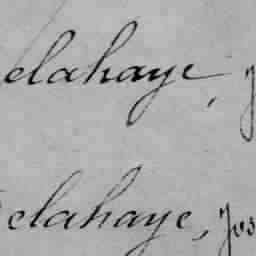 elahaye, J
elahaye, Jos